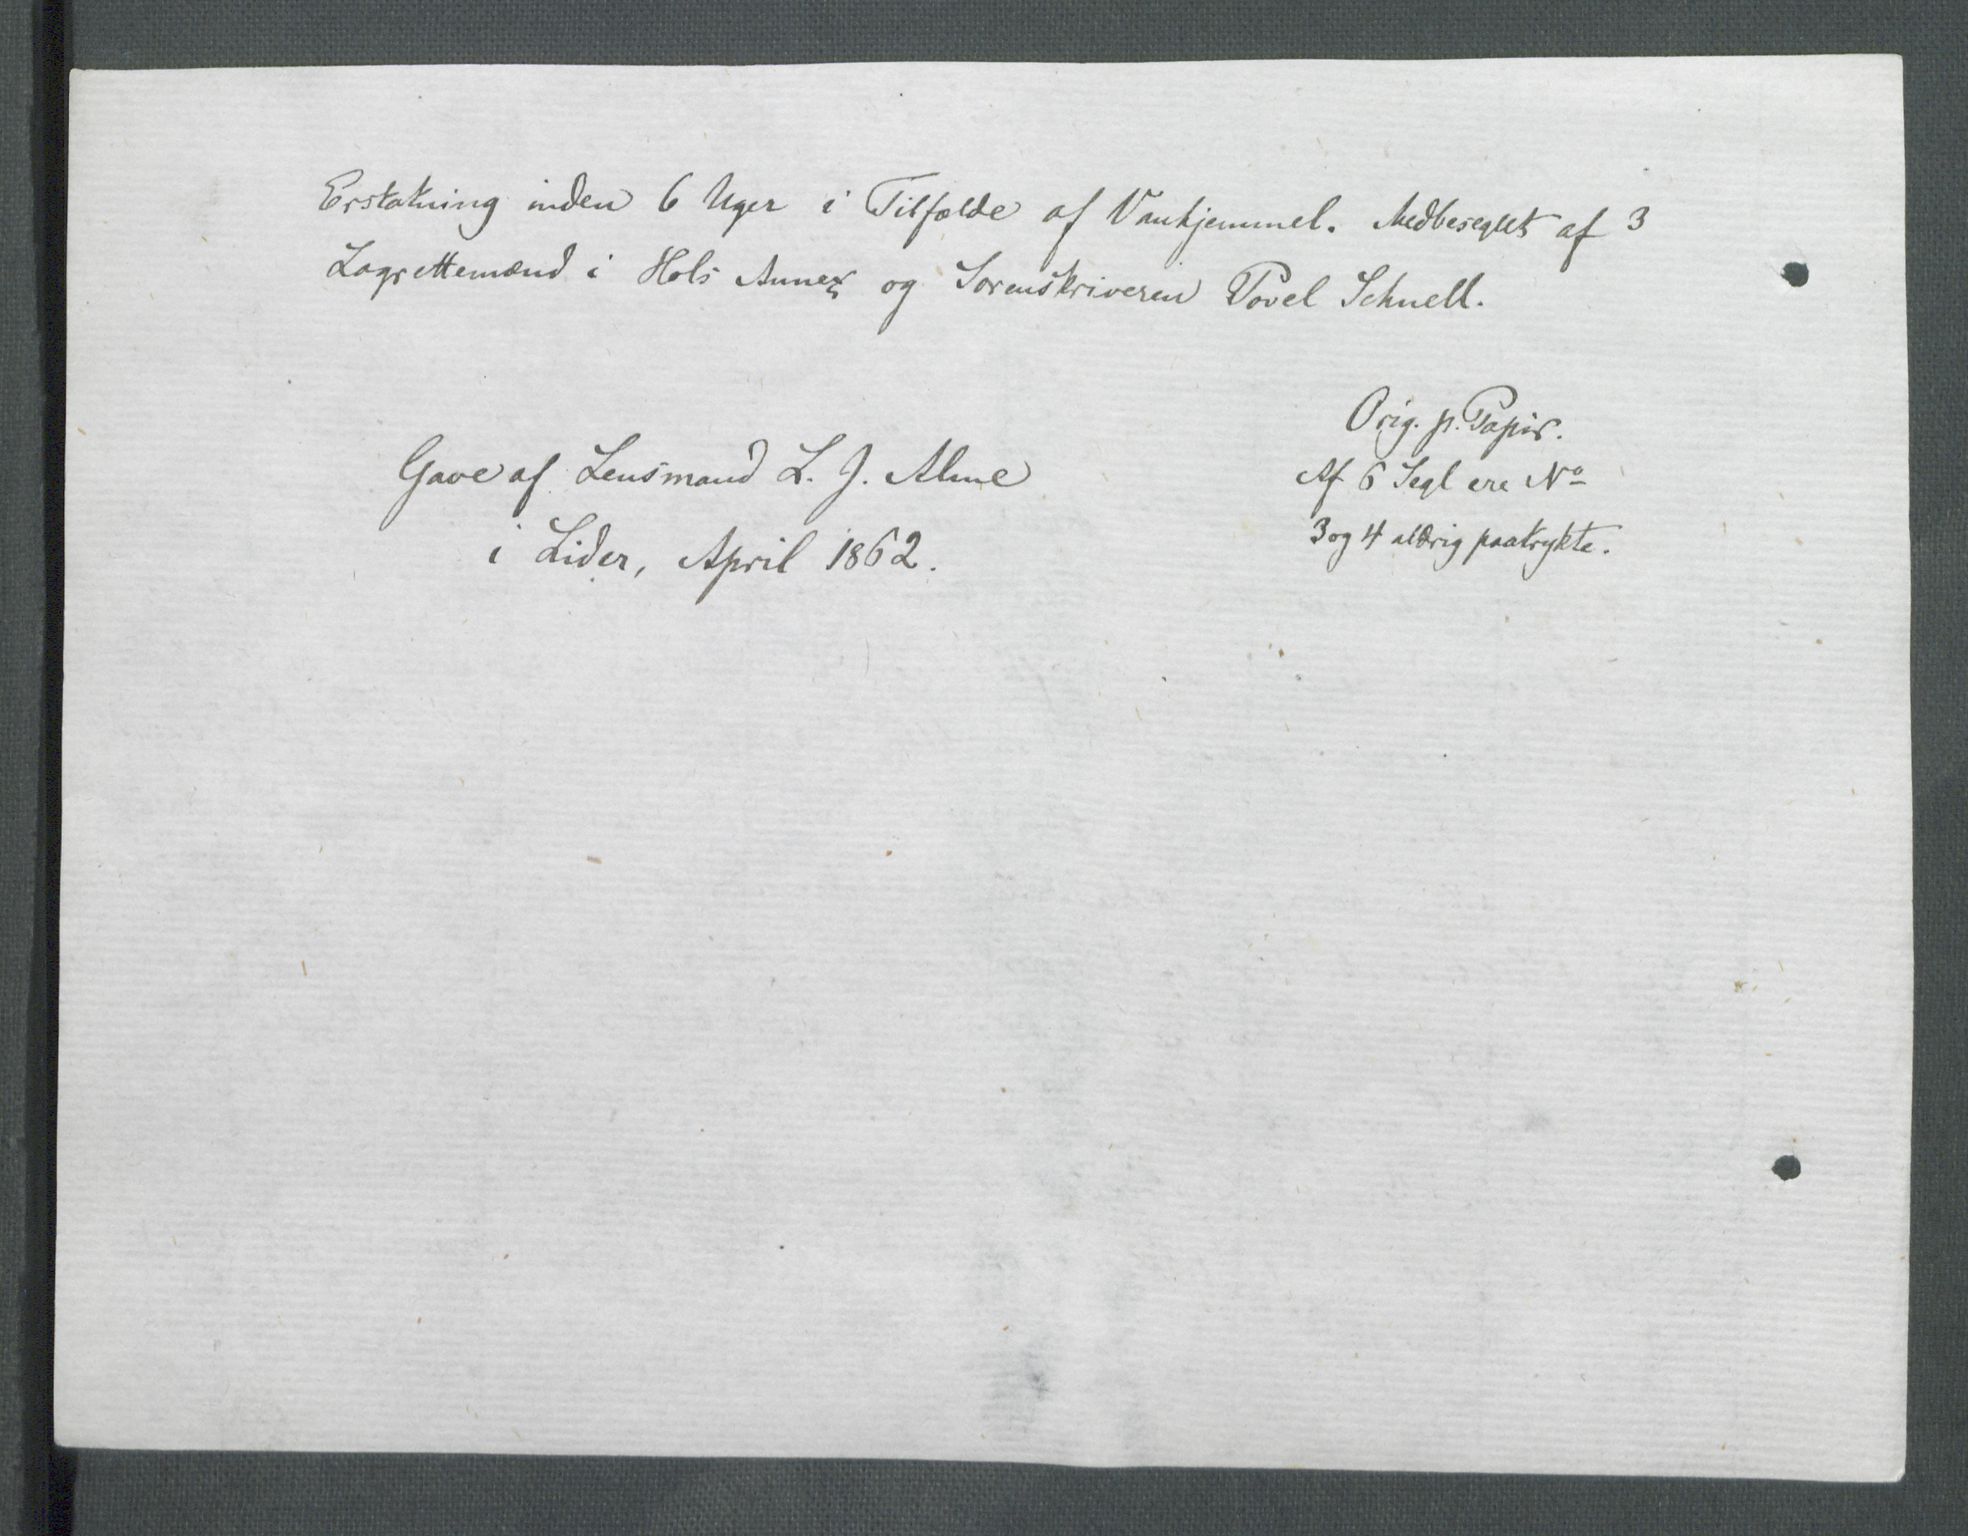 Erstatning inden 6 Uger i Tilfælde af Vanhjemmel. Medbeseglet af 3
Lagrettemænd i Hols Annex og Sorenskriveren Povel Schnell.
Orig. p. Papir.
Gave af Lensmand L. J. Alme
Af 6 Segl ere No
i Lider, April 1862.
3 og 4 aldrig paatrykte.